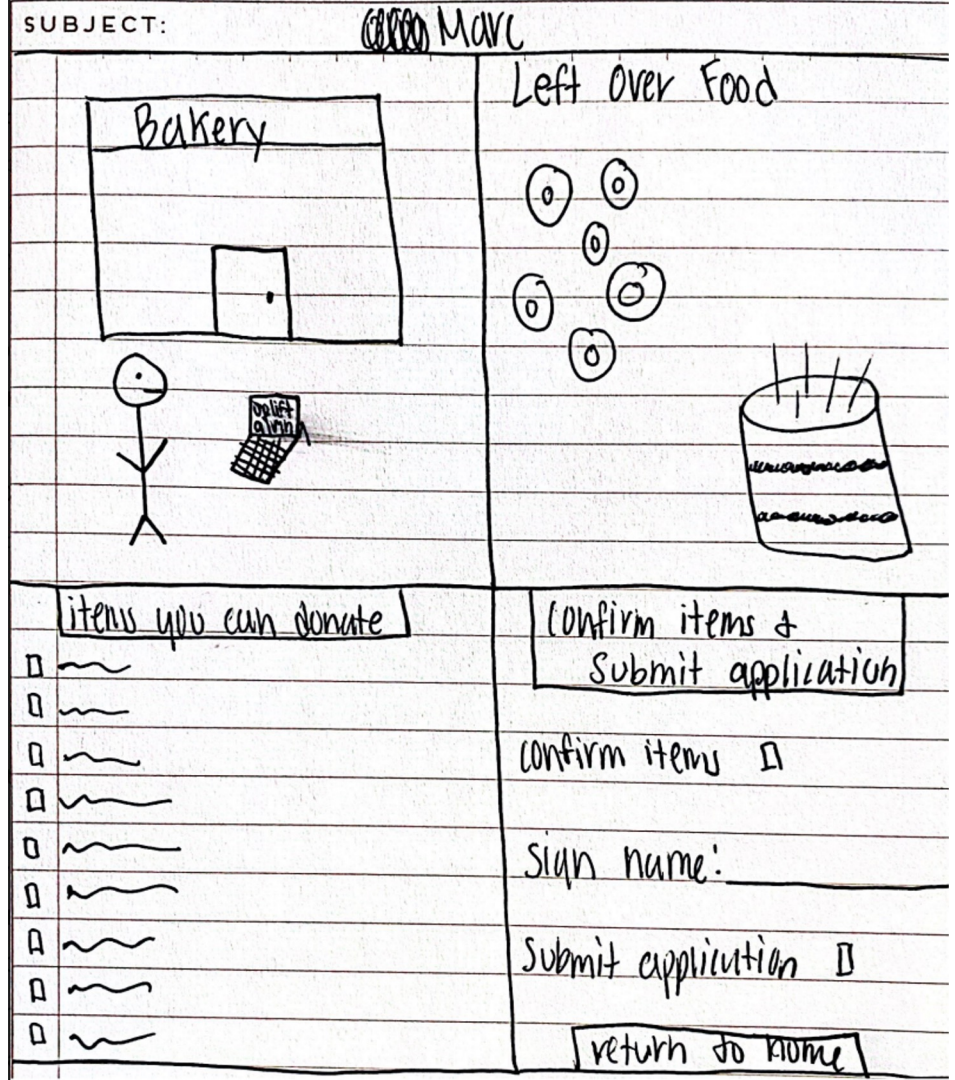 SUBJECT:
Marc
Left Over Food
Bakery
uplift
items you can donate
confirm items &
Submit application
confirm items
Sign name:
Submit application
return to home